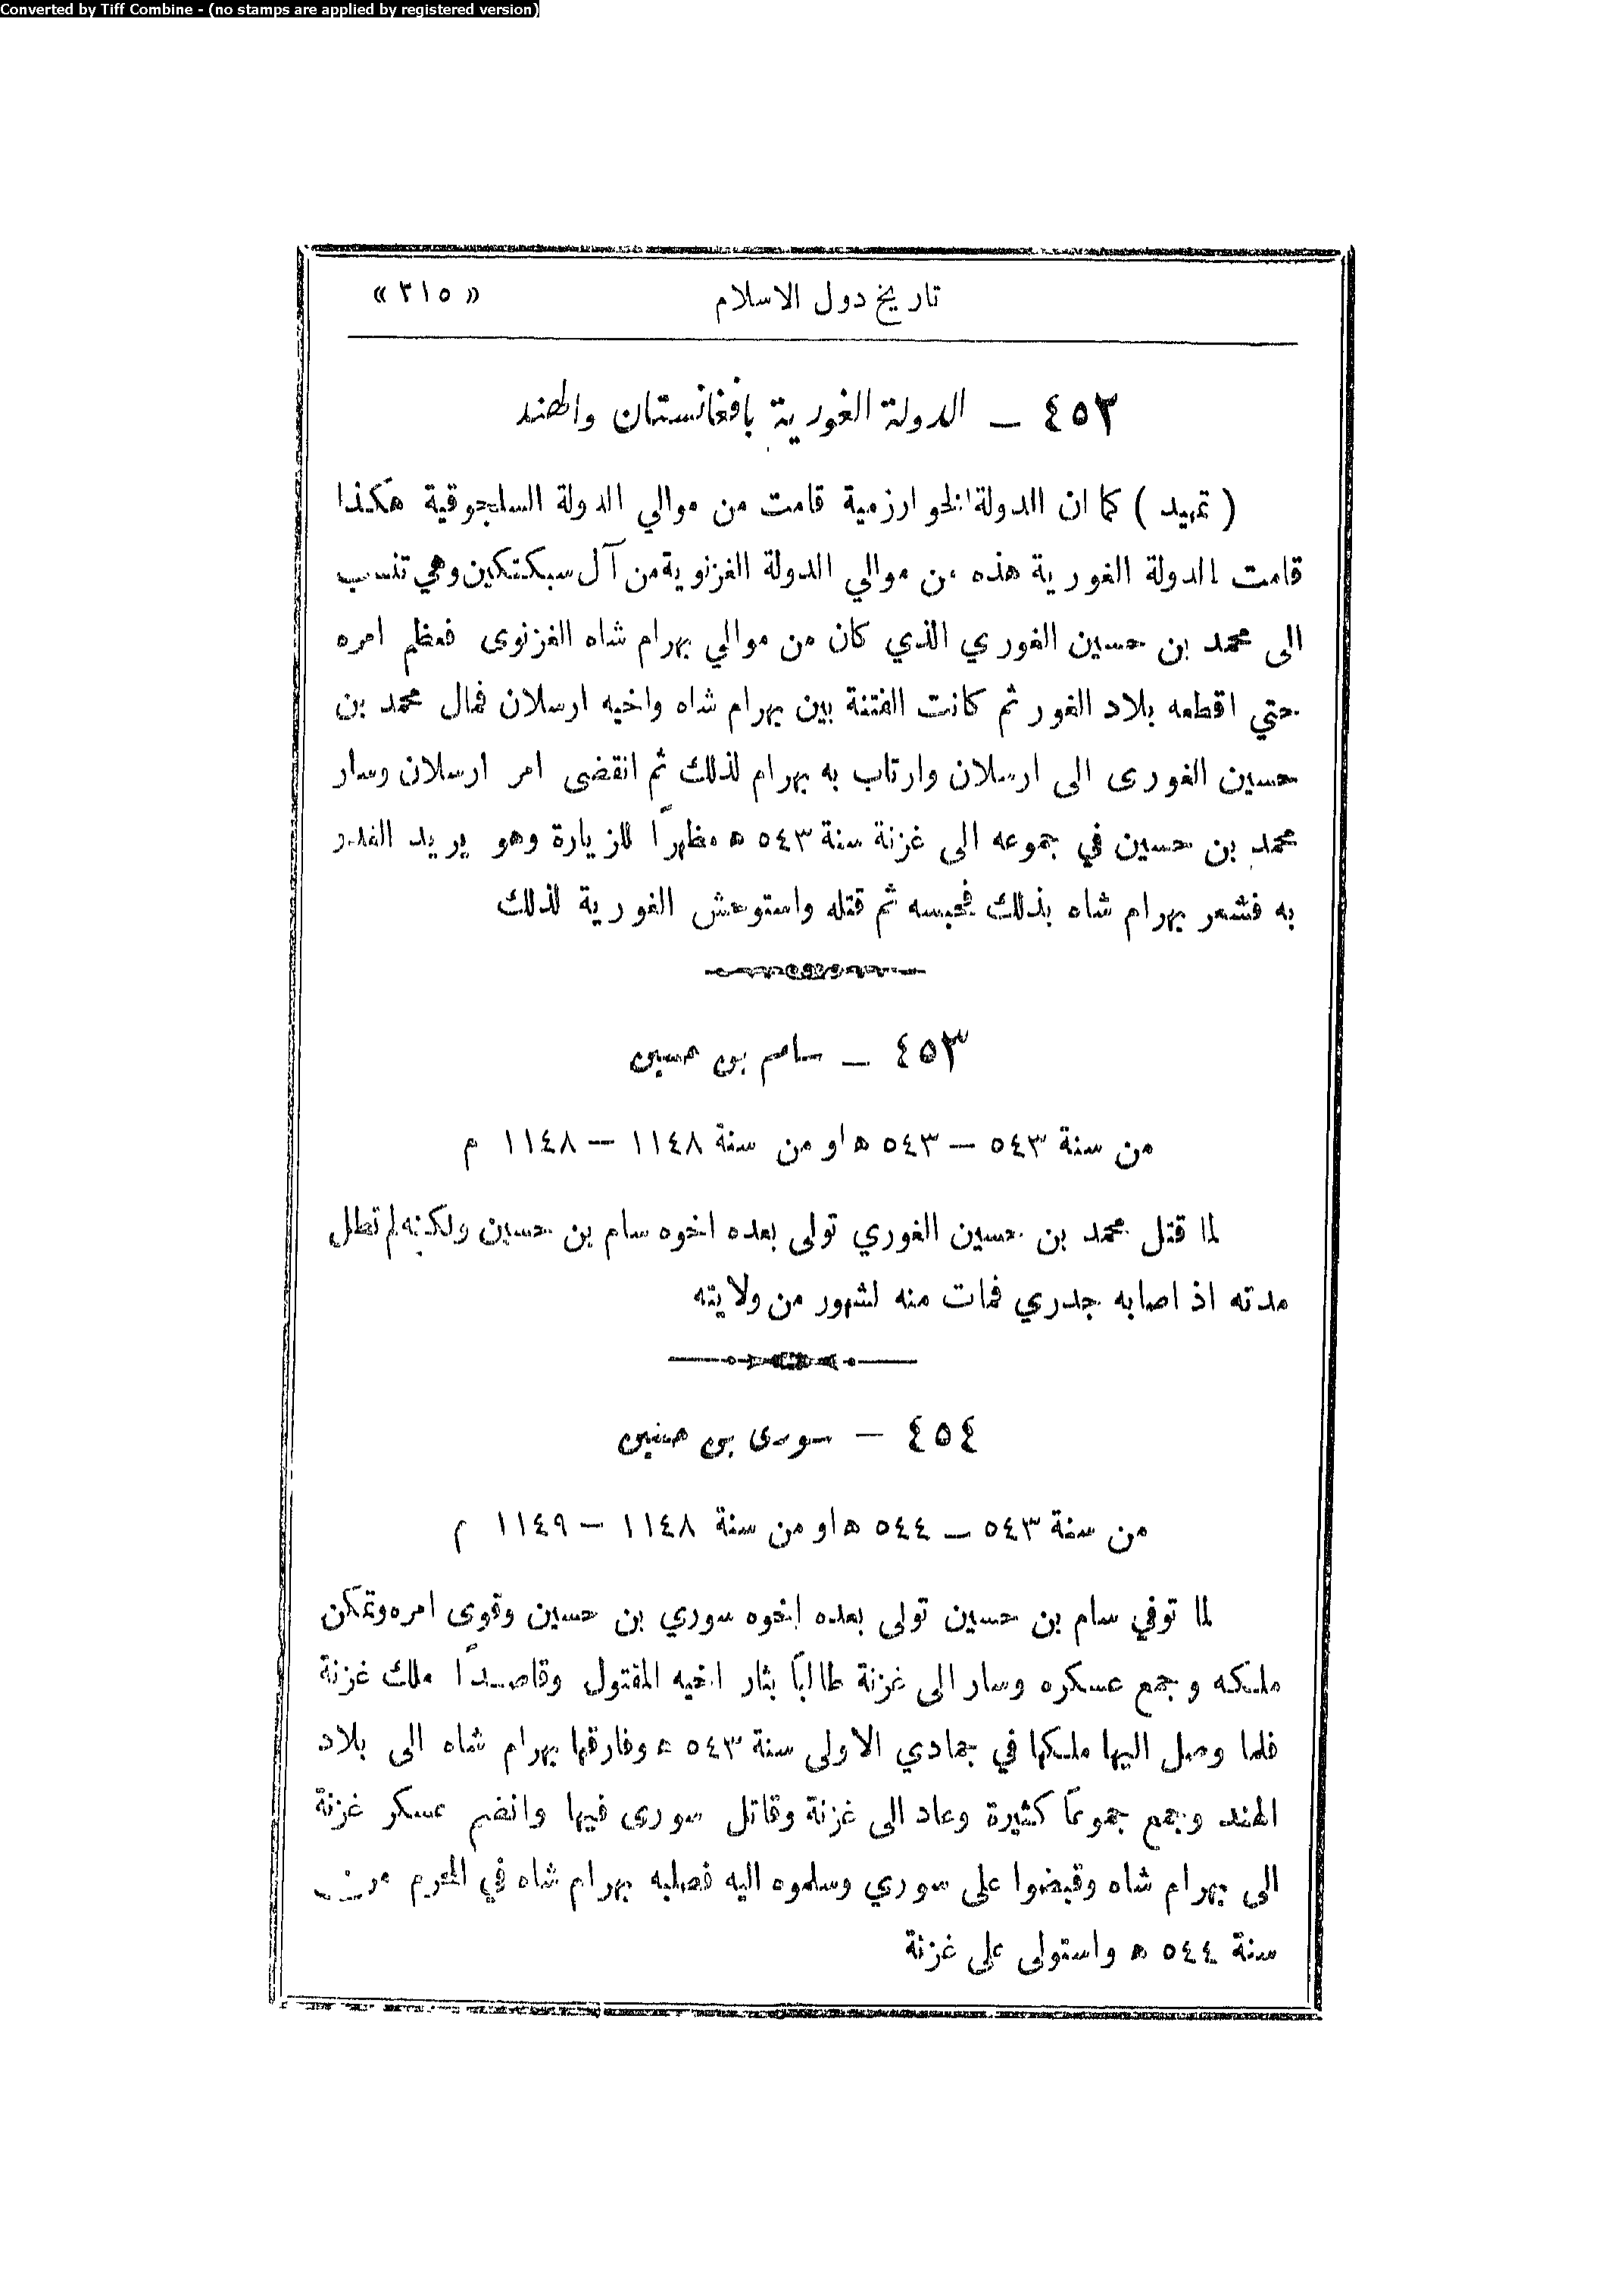 Converted by Tiff Combine - (no stamps are applied by registered version)
تاريخ دول الاسلام «٣١٥»
٤٥٢ — الدولة الغورية بافغانستان والهند
( تمهيد ) كما ان الدولة الخوارزمية قامت من موالي الدولة السلجوقية هكذا
قامت الدولة الغورية هذه من موالي الدولة الغزنوية من آل سبكتكين وهي تنسب
الى محمد بن حسين الغوري الذي كان من موالي بهرام شاه الغزنوى فعظم امره
حتي اقطعه بلاد الغور ثم كانت الفتنة بين بهرام شاه واخيه ارسلان فمال محمد بن
حسين الغورى الى ارسلان وارتاب به بهرام لذلك ثم انقضى امر ارسلان وسار
محمد بن حسين في جموعه الى غزنة سنة ٥٤٣ ه مظهرًا للزيارة وهو يريد الغدر
به فشعر بهرام شاه بذلك فحبسه ثم قتله واستوحش الغورية لذلك
٤٥٣ — سام بن حسين
من سنة ٥٤٣ — ٥٤٣ ه او من سنة ١١٤٨ — ١١٤٨ م
لما قتل محمد بن حسين الغوري تولى بعده اخوه سام بن حسين ولكنه لم تطل
مدته اذ اصابه جدري فمات منه لشهور من ولايته
٤٥٤ — سورى بن حسين
من سنة ٥٤٣ — ٥٤٤ ه او من سنة ١١٤٨ — ١١٤٩ م
لما توفي سام بن حسين تولى بعده اخوه سوري بن حسين وقوى امره وتمكن
ملكه وجمع عسكره وسار الى غزنة طالبًا بثار اخيه المقتول وقاصدًا ملك غزنة
فلما وصل اليها ملكها في جمادي الاولى سنة ٥٤٣ ه وفارقها بهرام شاه الى بلاد
الهند وجمع جموعًا كثيرة وعاد الى غزنة وقاتل سورى فيها وانضم عسكر غزنة
الى بهرام شاه وقبضوا على سوري وسلموه اليه فصلبه بهرام شاه في المحرم من
سنة ٥٤٤ ه واستولى على غزنة